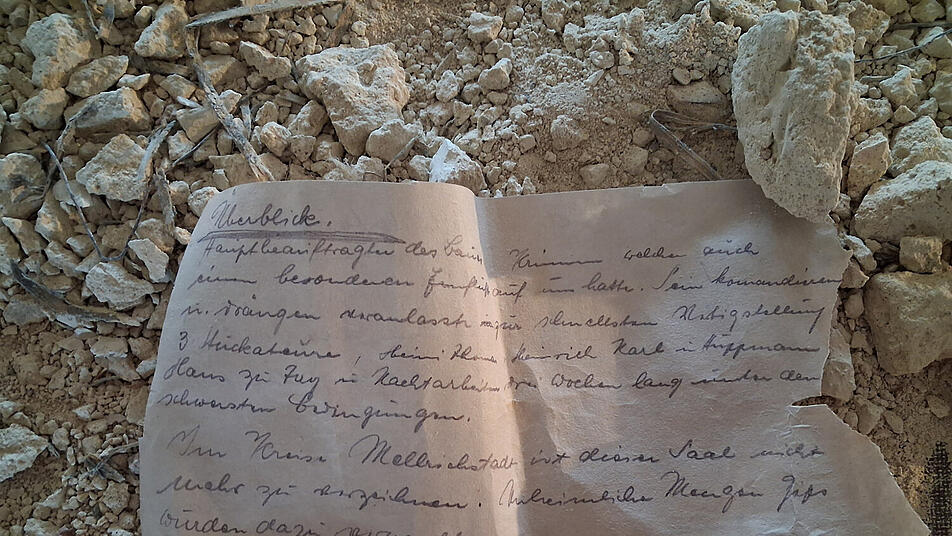 Überblick.
Hauptbeauftragter des welcher auch
einen besonderen auf uns hatte. Sein komandieren
u. drängen veranlasste zur schnellsten Fertigstellung
3 Stuckateure, Heinrich Karl u. Hüppmann
Hans zu Tag u. Nachtarbeiten drei Wochen lang unter den
schwersten Bedingungen.
Im Kreise Mellrichstadt ist dieser Saal nicht
mehr zu verzeichnen. Unheimliche Mengen Gips
wurden dazu